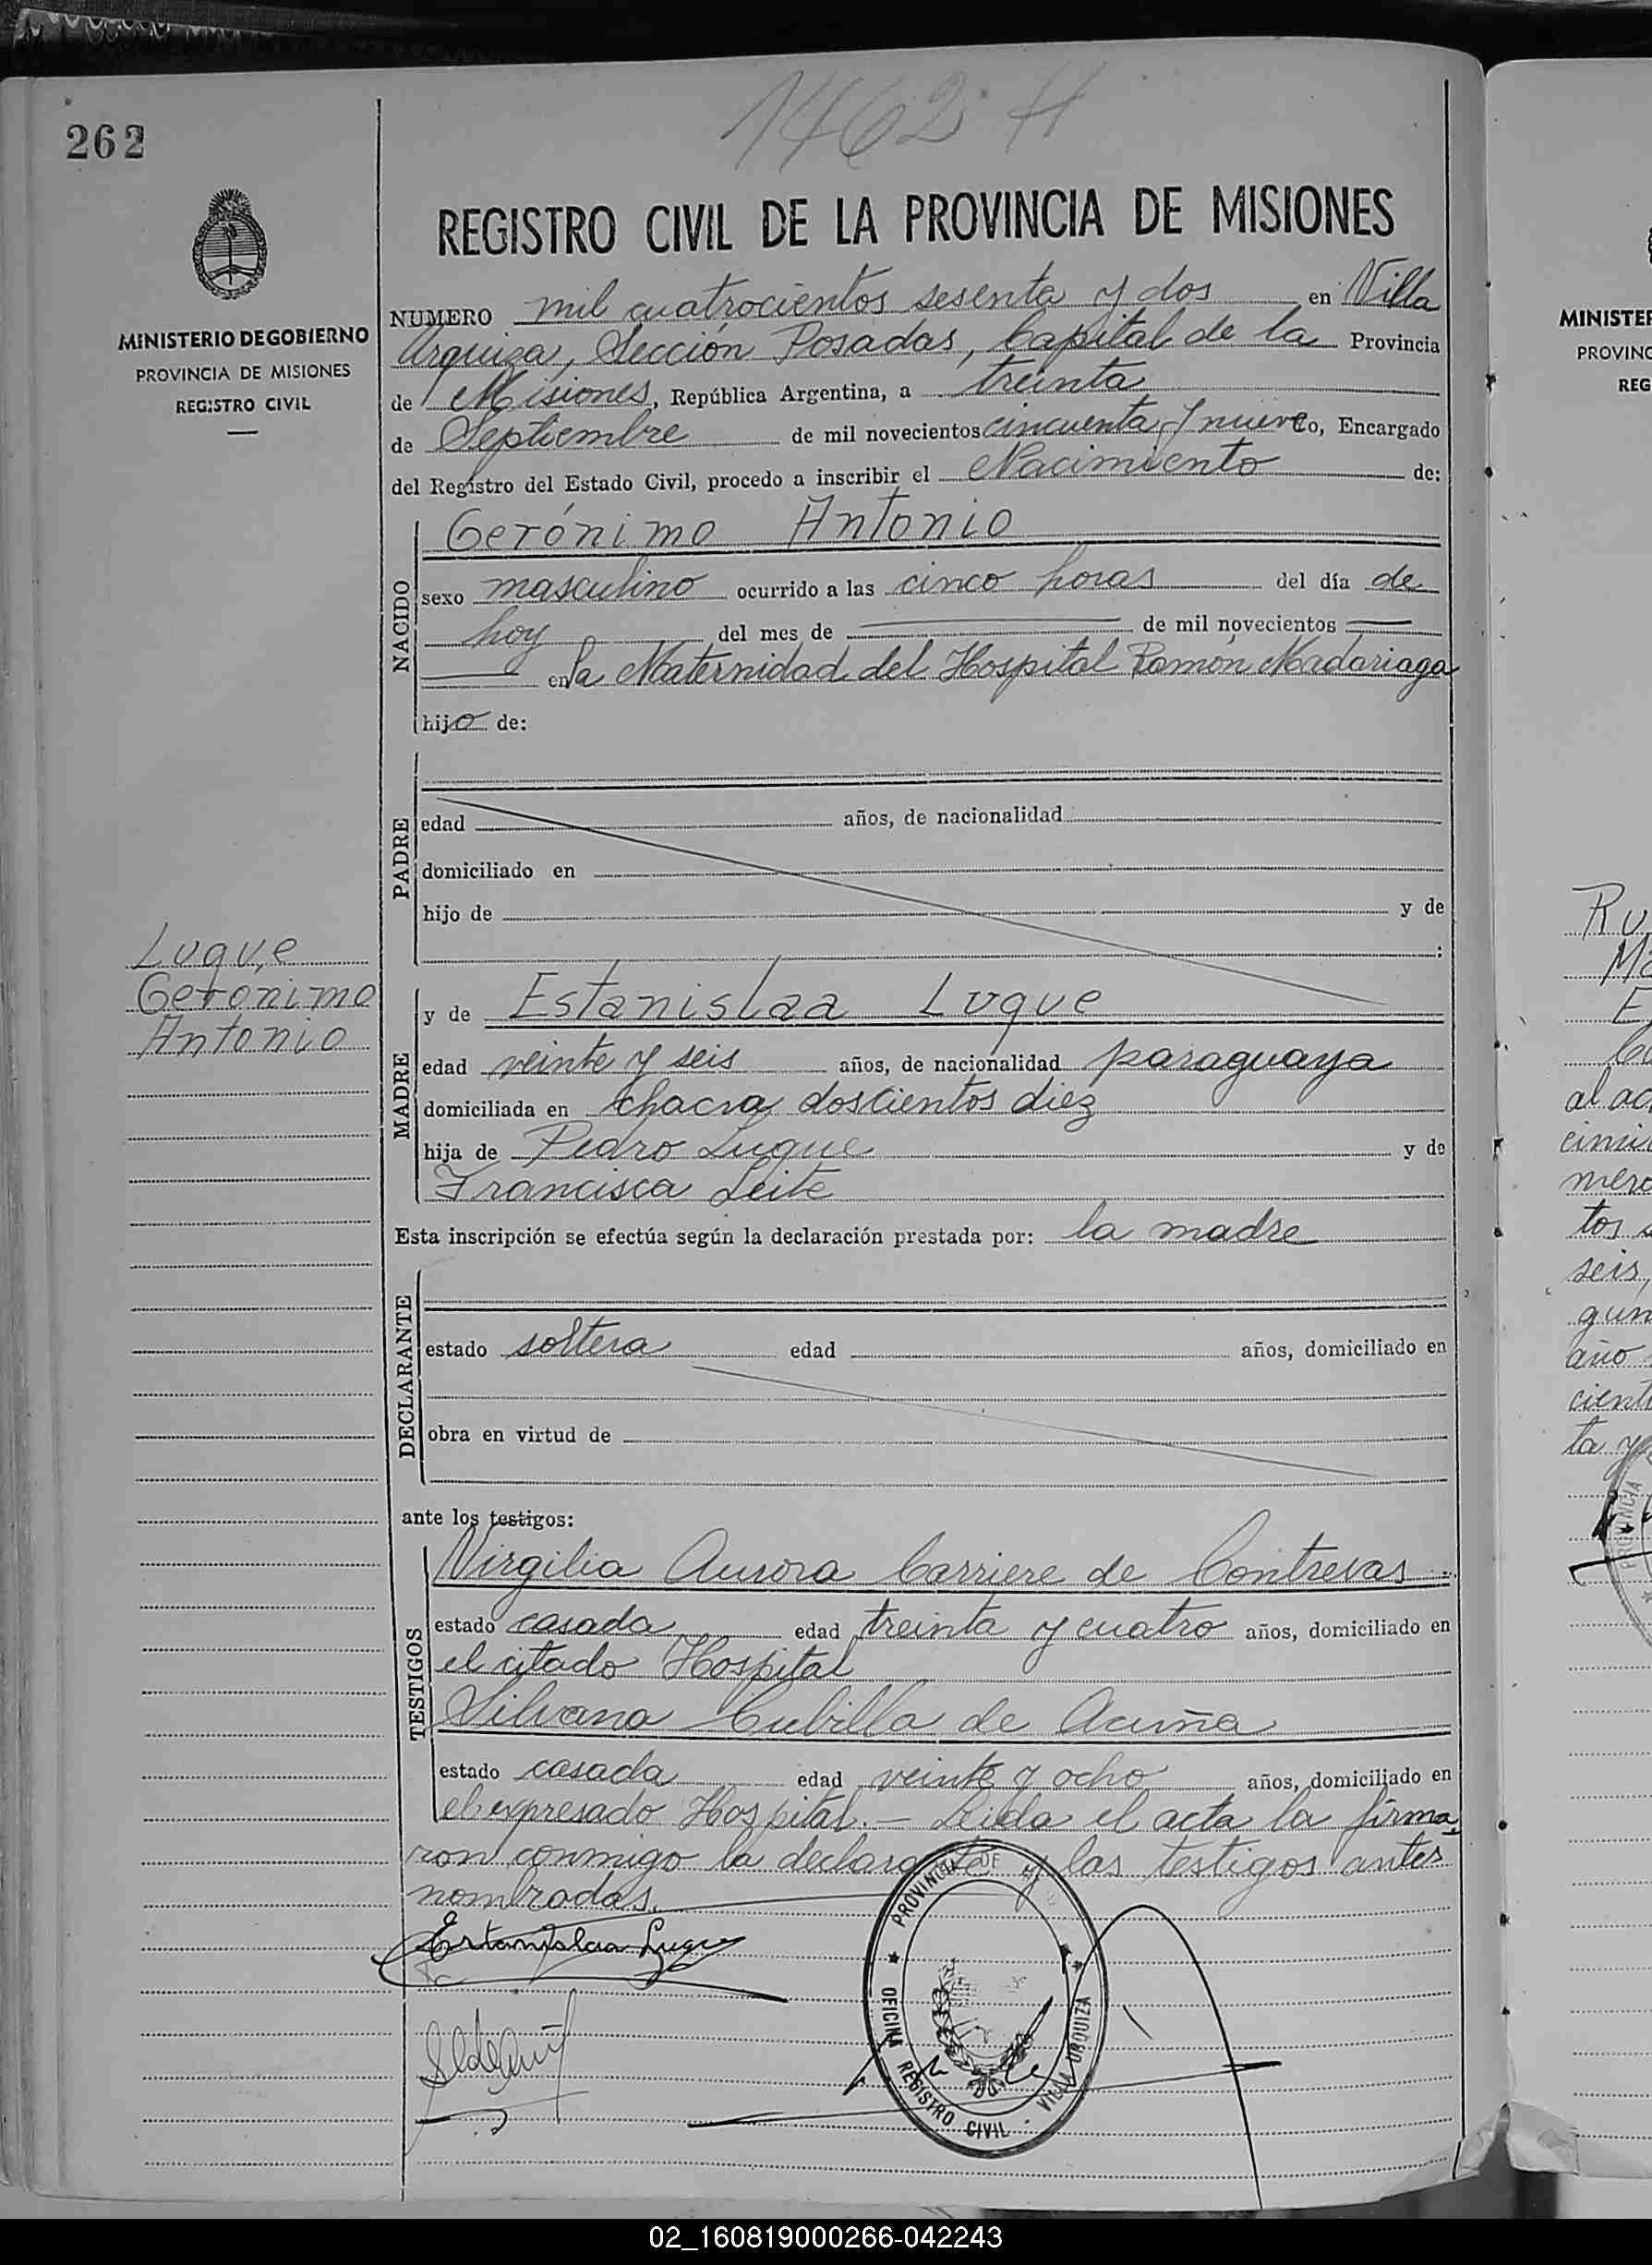 1462 H
262
REGISTRO CIVIL DE LA PROVINCIA DE MISIONES
MINISTERIO DE GOBIERNO
PROVINCIA DE MISIONES
REGISTRO CIVIL
NUMERO mil cuatrocientos sesenta y dos en Villa
Urquiza, Sección Posadas, Capital de la Provincia
de Misiones, República Argentina, a treinta
de Septiembre de mil novecientos cincuenta y nueve, Encargado
del Registro del Estado Civil, procedo a inscribir el Nacimiento de:
NACIDO
Gerónimo Antonio
sexo masculino ocurrido a las cinco horas del día de
hoy del mes de de mil novecientos
en la Maternidad del Hospital Ramón Madariaga
hijo de:
PADRE
edad años, de nacionalidad
domiciliado en
hijo de y de
:
Luque
Geronimo
Antonio
MADRE
y de Estanislaa Luque
edad veinte y seis años, de nacionalidad paraguaya
domiciliada en chacra doscientos diez
hija de Pedro Luque y de
Francisca Leite
Esta inscripción se efectúa según la declaración prestada por: la madre
DECLARANTE
estado soltera edad años, domiciliado en
obra en virtud de
ante los testigos:
TESTIGOS
Virgilia Aurora Carriere de Contreras
estado casada edad treinta y cuatro años, domiciliado en
el citado Hospital
Silvana Cubilla de Acuña
estado casada edad veinte y ocho años, domiciliado en
el expresado Hospital.- Leida el acta la firma
ron conmigo la declarante y las testigos antes
nombradas.
Estanislaa Luque
PROVINCIA DE
OFICINA REGISTRO CIVIL - VILLA URQUIZA
MINISTER
PROVINC
REG
Ru
Ma
E
al ac
cimi
mero
tos s
seis,
gun
año
cient
ta y
PROVINCIA
02_160819000266-042243